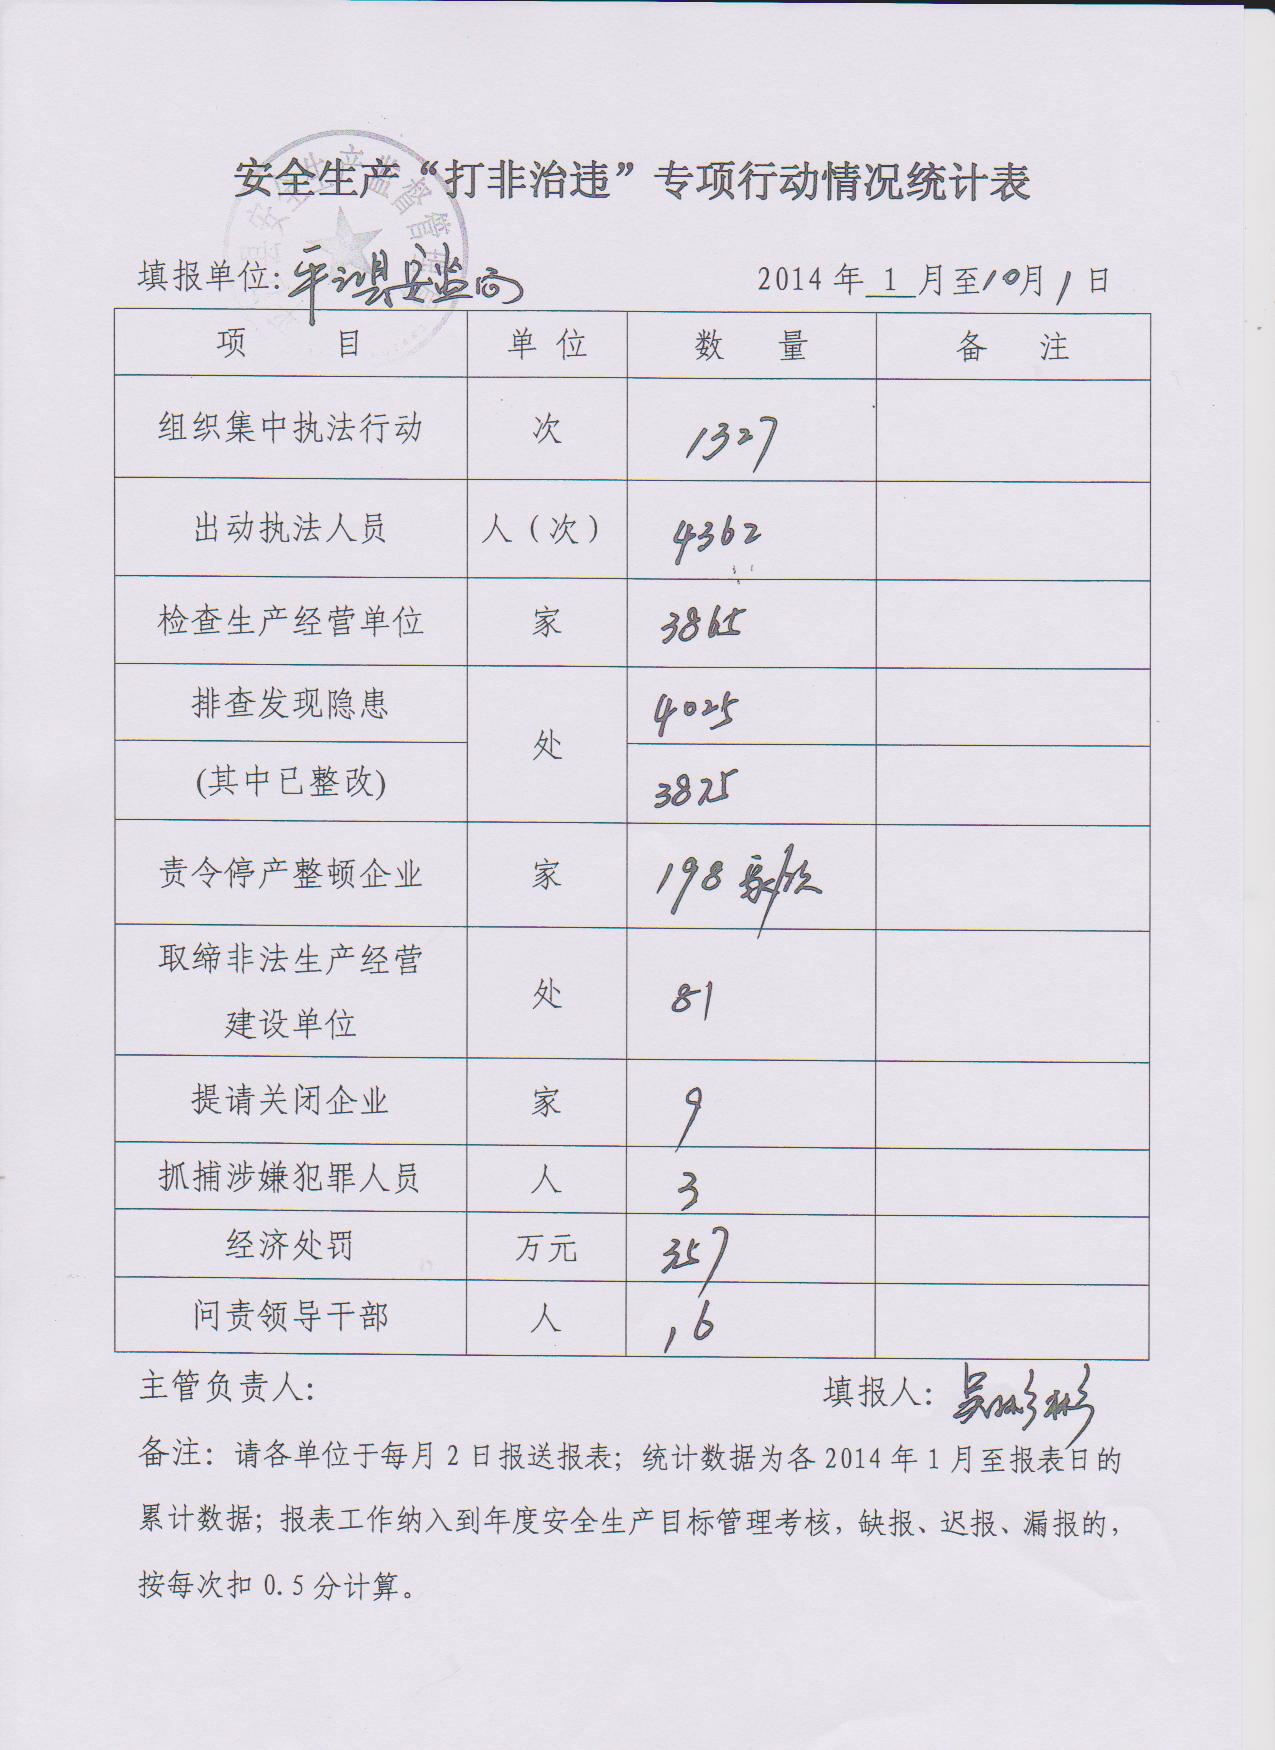 安全生产“打非治违”专项行动情况统计表
填报单位:平江县安监局 2014年 1 月至10月1日
项 目 单 位 数 量 备 注
组织集中执法行动 次 1327
出动执法人员 人（次） 4362
检查生产经营单位 家 3865
排查发现隐患 处 4025
(其中已整改) 3875
责令停产整顿企业 家 198家/次
取缔非法生产经营
建设单位 处 81
提请关闭企业 家 9
抓捕涉嫌犯罪人员 人 3
经济处罚 万元 357
问责领导干部 人 16
主管负责人: 填报人: 吴彬彬
备注: 请各单位于每月2日报送报表; 统计数据为各2014年1月至报表日的
累计数据; 报表工作纳入到年度安全生产目标管理考核, 缺报、迟报、漏报的,
按每次扣0.5分计算。